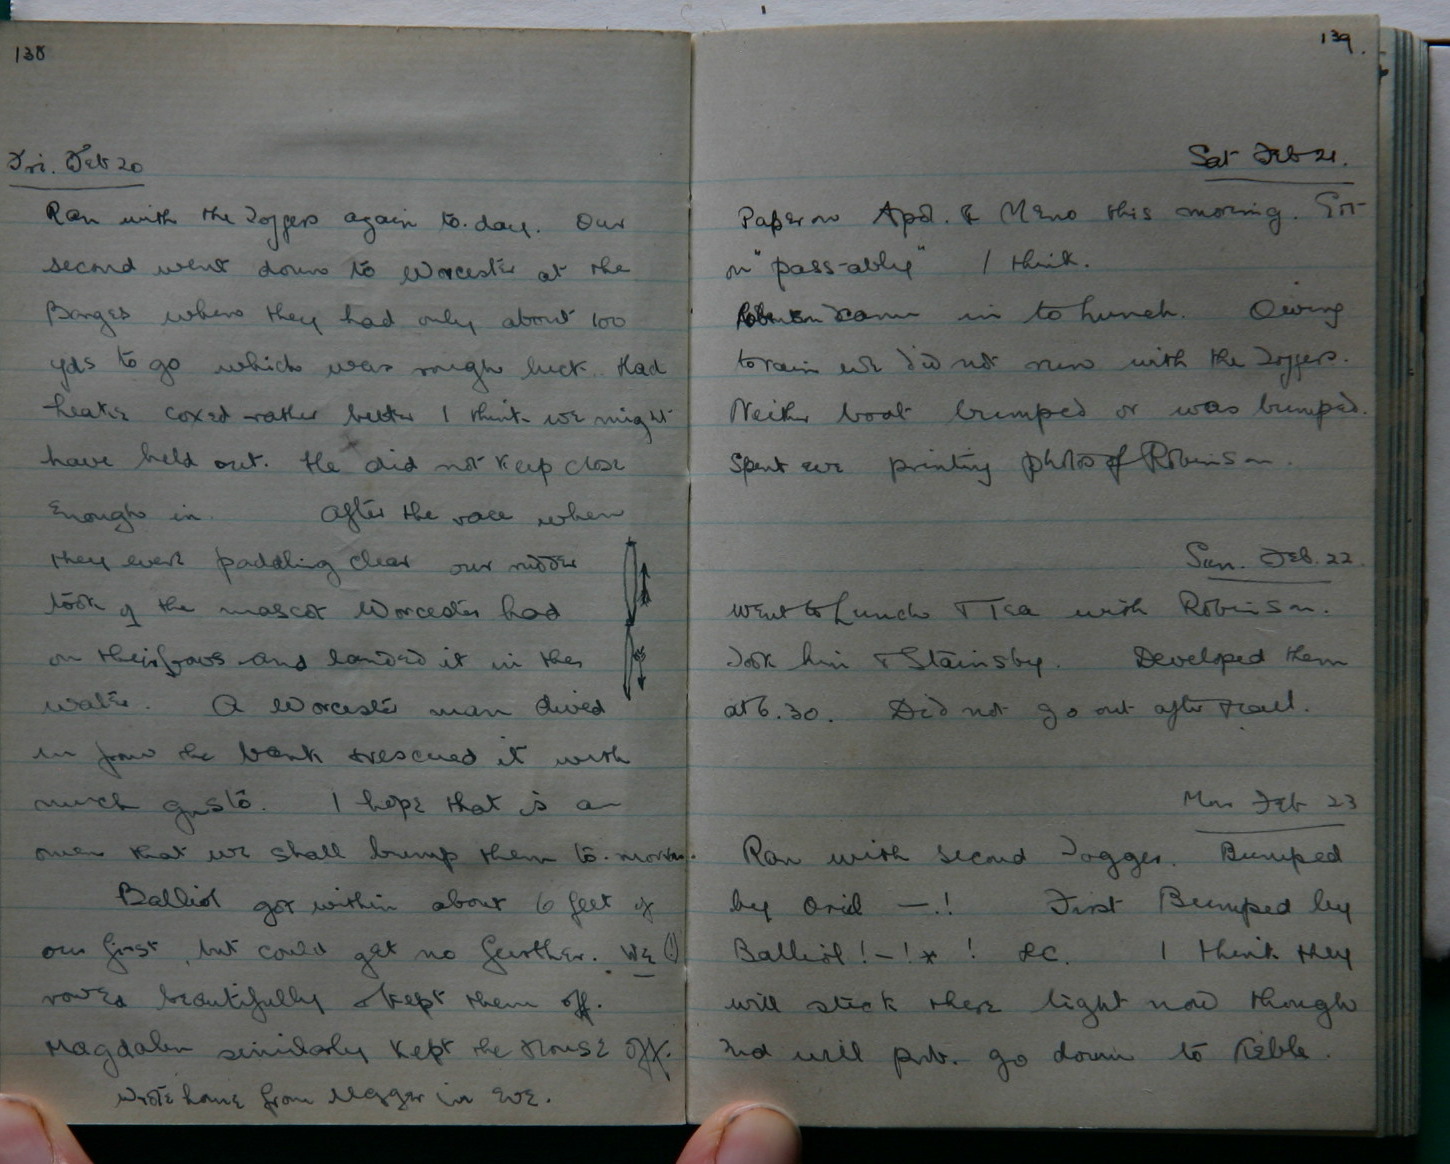 138
Fri. Feb 20
Ran with the Toggers again to.day. Our
second went down to Worcester at the
Barges where they had only about 100
yds to go which was rough luck. Had
coxed rather better I think we might
have held out. He did not keep close
enough in. After the race when
they were paddling clear our rudder
took of the mascot Worcester had
on their bows and landed it in the
water. A Worcester man dived
in from the bank & rescued it with
much gusto. I hope that is an
omen that we shall bump them to.morrow.
Balliol got within about 6 feet of
our first, but could get no further. We (!)
rowed beautifully & kept them off.
Magdalen similarly kept the House off.
Wrote home from in eve.
139.
Sat Feb 21.
Paper on Apol. & Meno this morning. Got
on "pass-ably" I think.
Robinson came in to lunch. Owing
to rain we did not run with the Toggers.
Neither boat bumped or was bumped.
Spent eve printing photos of Robinson.
Sun. Feb. 22.
Went to Lunch & Tea with Robinson.
Took him & Stainsby. Developed them
at 6.30. Did not go out after Hall.
Mon Feb 23
Ran with second Togger. Bumped
by Oriel —.! First Bumped by
Balliol ! – ! * ! &c. I think they
will stick there tight now though
2nd will prob. go down to Keble.